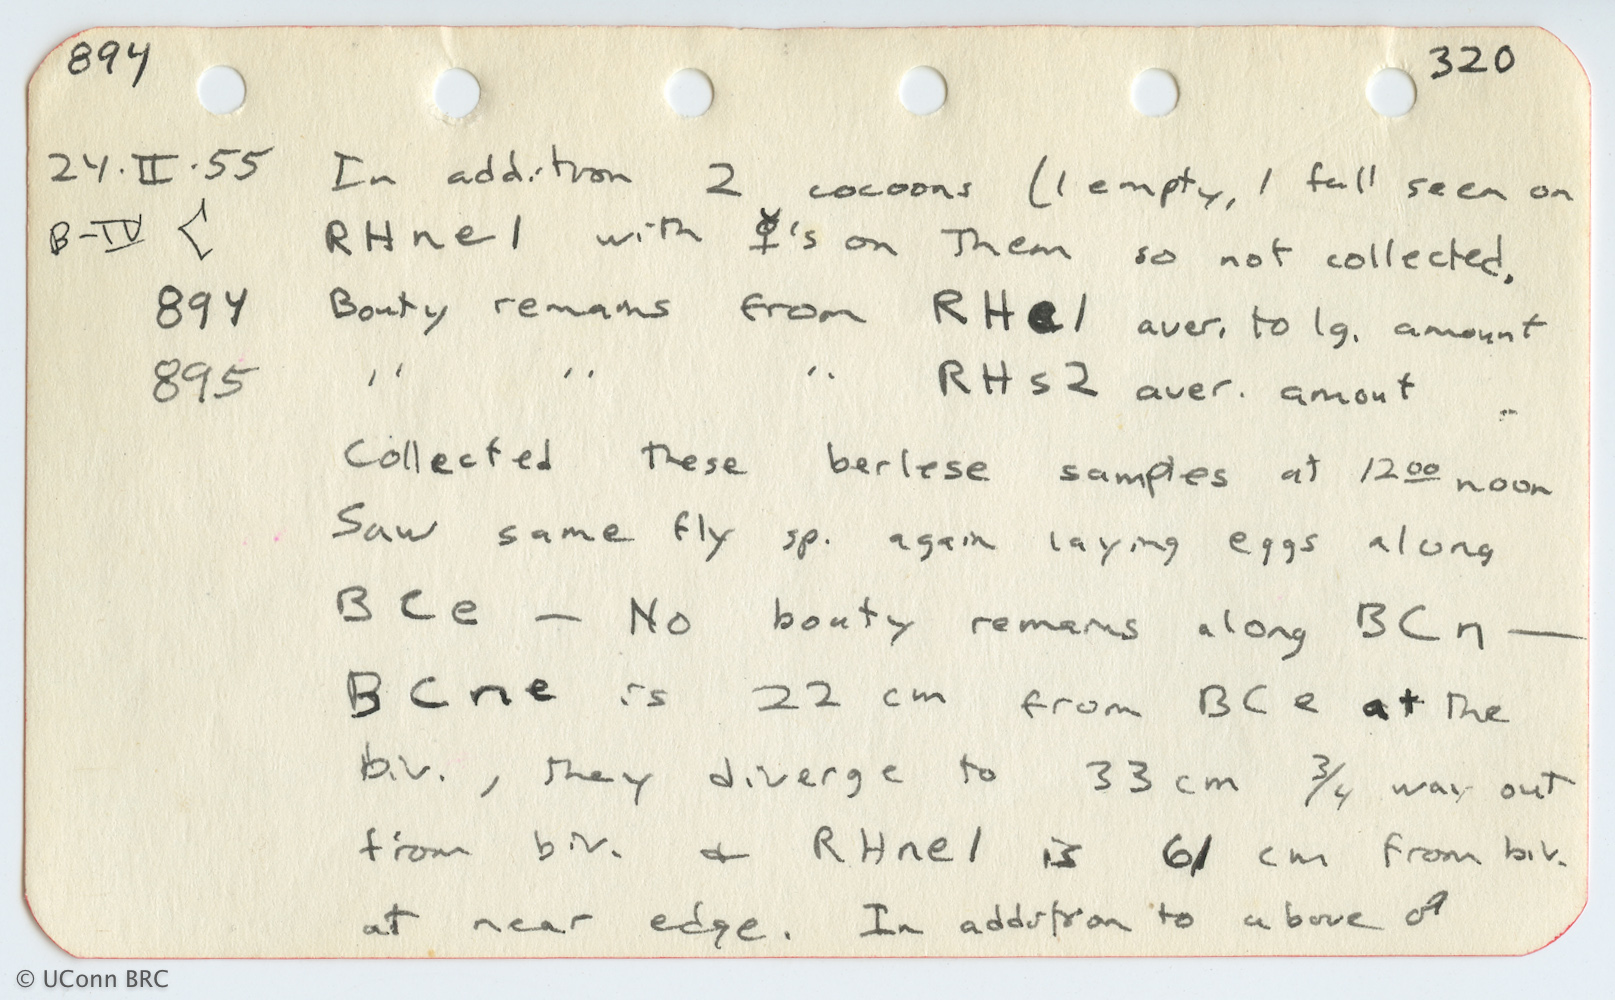 894 320
24·II·55 In addition 2 cocoons (1 empty, 1 full seen on
B-IV < RHne1 with ☿'s on them so not collected.
894 Bouty remains from RHe1 aver. to lg. amount
895 " " " RHs2 aver. amout
Collected these berlese samples at 12⁰⁰ noon
Saw same fly sp. again laying eggs along
BCe — No bouty remains along BCn —
BCne is 22 cm from BCe at the
biv., they diverge to 33 cm 3/4 way out
from biv. & RHne1 is 61 cm from biv.
at near edge. In addition to above
© UConn BRC